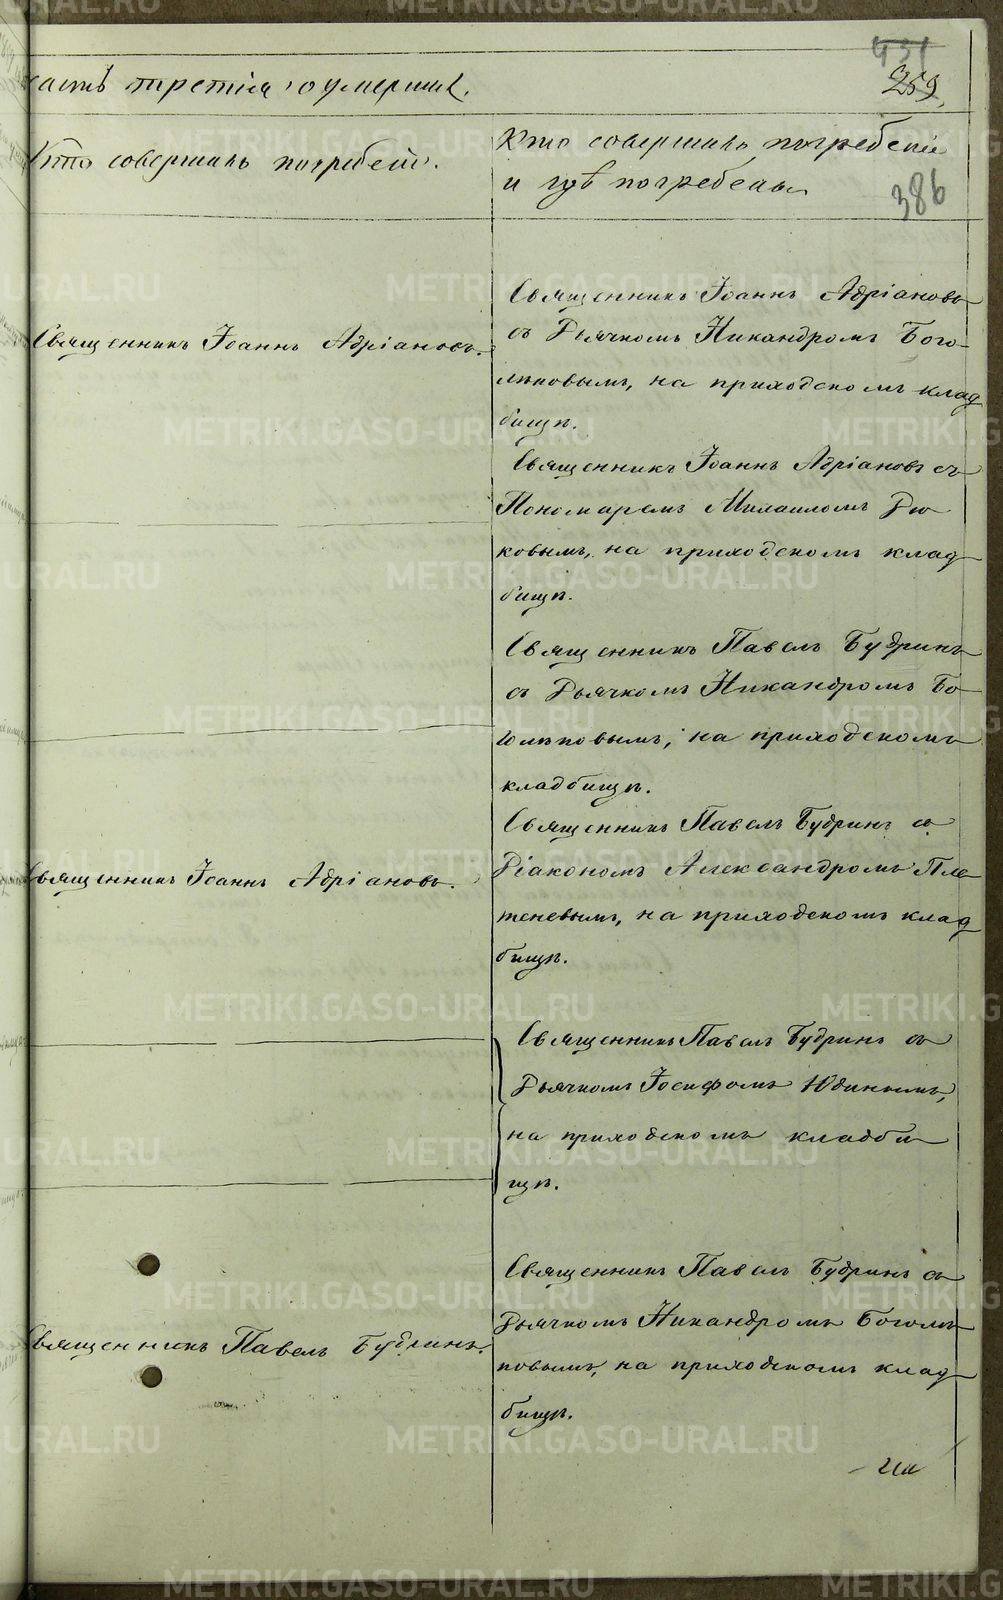 431
259.
часть третія о умершихъ.
Кто совершалъ погребеніе.
Кто совершалъ погребеніе
и гдѣ погребены
386
Священникъ Іоаннъ Адріановъ.
Священникъ Іоаннъ Адріановъ
съ Дьячкомъ Никандромъ Бого-
лѣповымъ, на приходскомъ клад
бищѣ.
Священникъ Іоаннъ Адріановъ съ
Пономаремъ Михаиломъ Рю
ковымъ, на приходскомъ клад
бищѣ.
Священникъ Павелъ Будринъ
съ Дьячкомъ Никандромъ Бо
голѣповымъ, на приходскомъ
кладбищѣ.
Священникъ Іоаннъ Адріановъ.
Священникъ Павелъ Будринъ съ
Діакономъ Александромъ Пле
теневымъ, на приходскомъ клад
бищѣ.
Священникъ Павелъ Будринъ съ
Дьячкомъ Іосифомъ Юдинымъ,
на приходскомъ кладби
щѣ.
Священникъ Павелъ Будринъ.
Священникъ Павелъ Будринъ съ
Дьячкомъ Никандромъ Боголѣ
повымъ, на приходскомъ клад
бищѣ.
METRIKI.GASO-URAL.RU